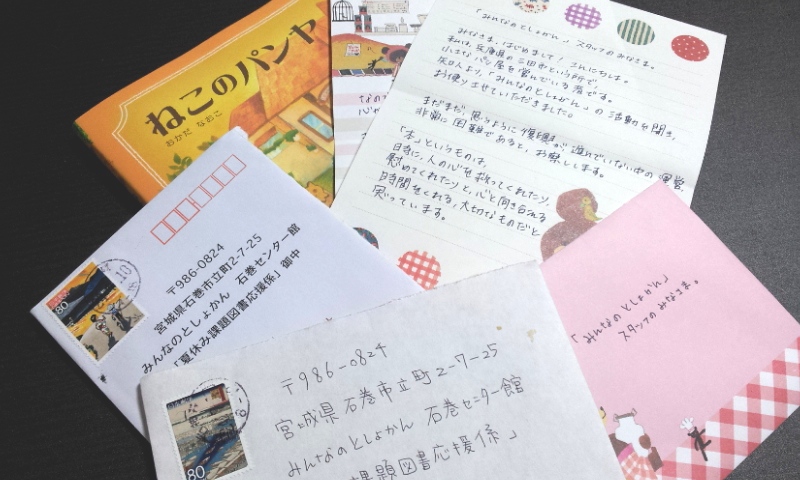 ねこのパンヤ
おかだ なおこ
「みんなのとしょかん」スタッフのみなさま。
みなさま、はじめまして！こんにちは。
私は、兵庫県の三田市という所で、
小さなパン屋を営んでいる者です。
「みんなのとしょかん」の活動を聞き、
お便りさせていただきました。
まだまだ、思うように復興が、進んでいない中の運営、
非常に困難であると、お察しします。
「本」というものは、
時に、人の心を救ってくれたり、
慰めてくれたりと、心と向き合える
時間をくれる、大切なものだと
思っています。
〒986-0824
宮城県石巻市立町2-7-25
みんなのとしょかん 石巻センター館
「夏休み課題図書応援係」御中
80
〒986-0824
宮城県石巻市立町2-7-25
みんなのとしょかん 石巻センター館
課題図書応援係」
80
「みんなのとしょかん」
スタッフのみなさま。